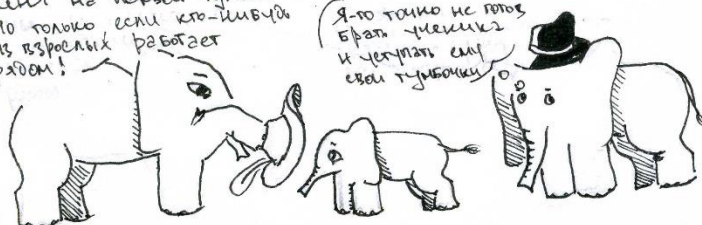 но только если кто-нибудь
из взрослых работает
рядом!
Я-то точно не готов
брать ученика
и уступать ему
свои тумбочки